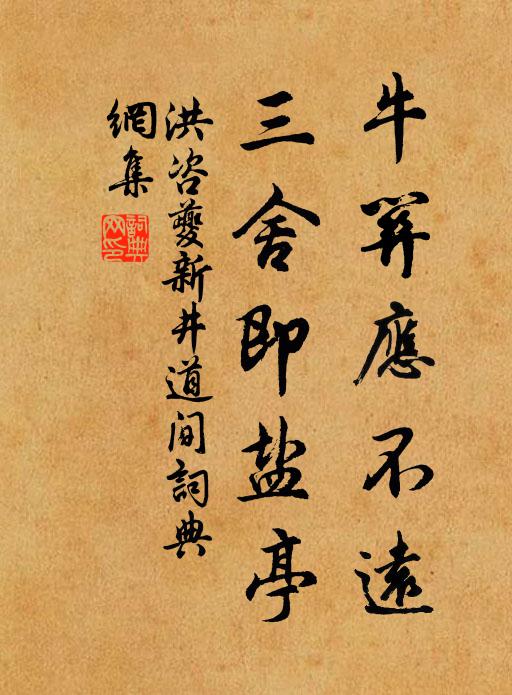 牛應不遠
三舍即盐亭
洪咨夔新井道間詞典
網集
詞典
网印